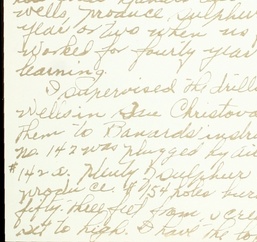 wells, produce, sulphur
year or two when no
worked for fourty year
learning.
I supervised the drill
wells in San Christova
them to Banards' instru
no 142 was plugged by air
#142 is. plenty of sulphur
produce. #154 holes bur
fifty three feet from, scre
set to high. I have the to